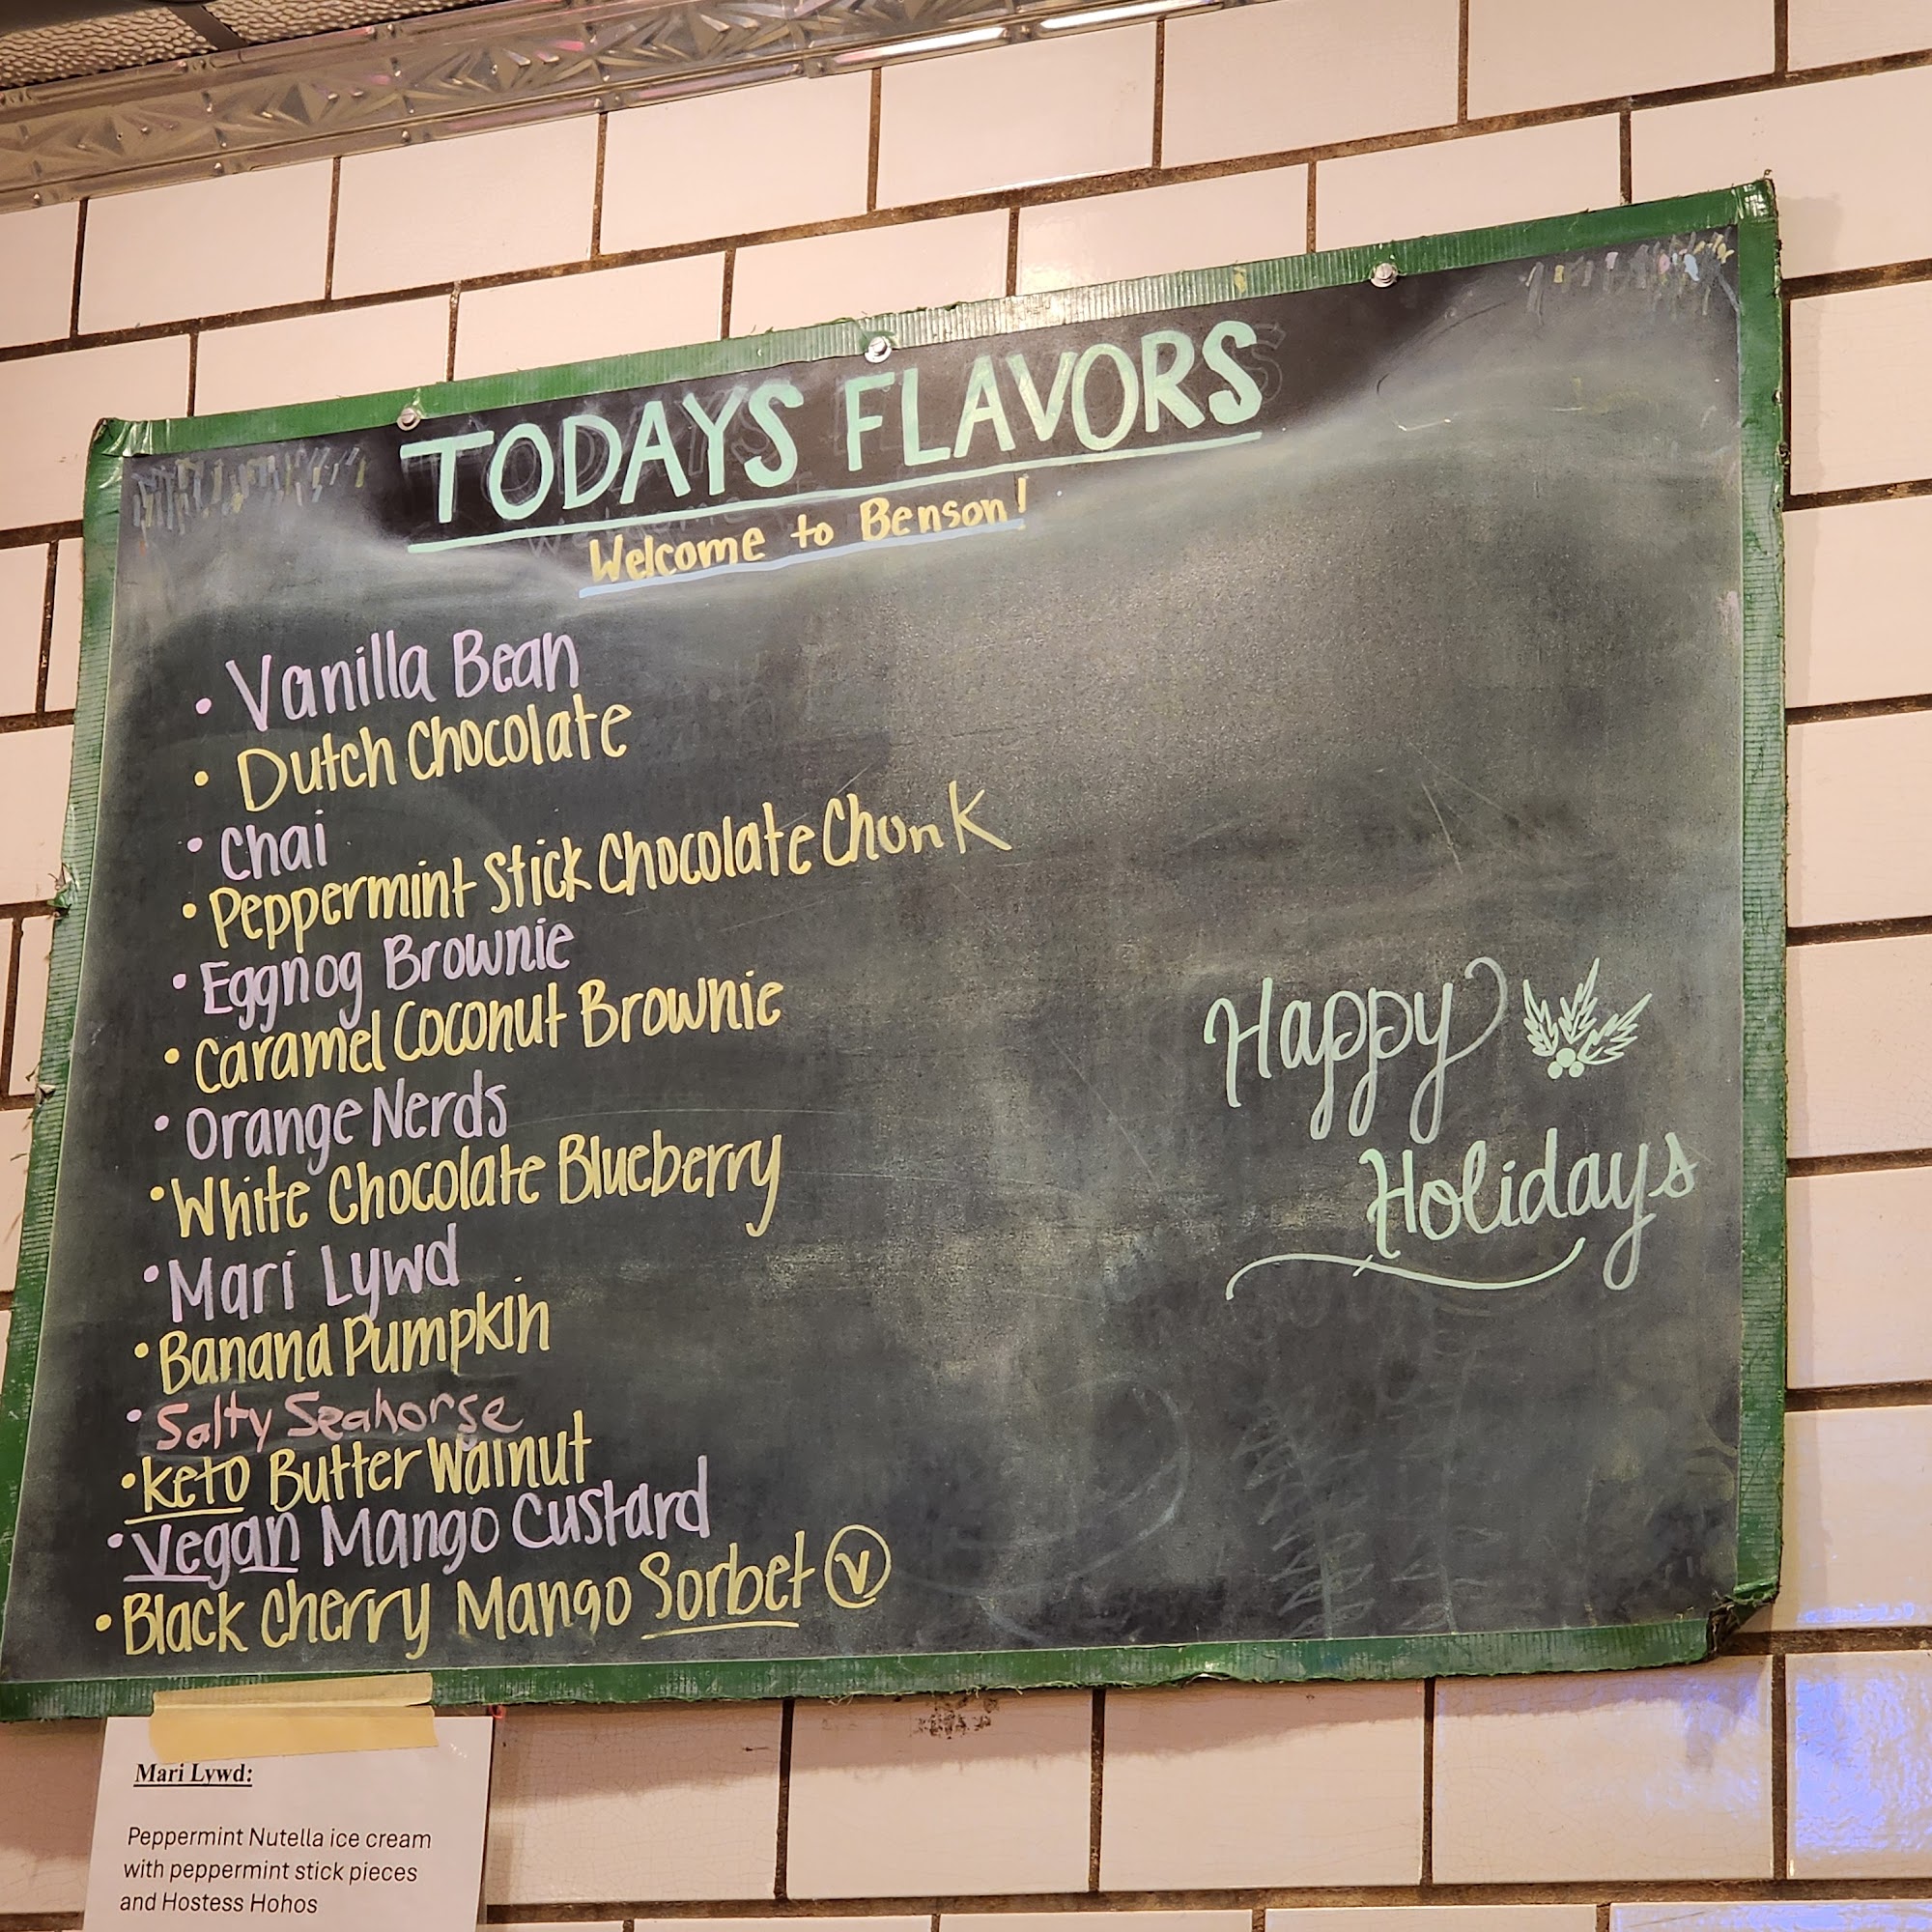 TODAYS FLAVORS
Welcome to Benson!
• Vanilla Bean
• Dutch Chocolate
• Chai
• Peppermint Stick Chocolate Chunk
• Eggnog Brownie
• Caramel Coconut Brownie
• Orange Nerds
• White Chocolate Blueberry
• Mari Lywd
• Banana Pumpkin
• Salty Seahorse
• Keto Butter Walnut
• Vegan Mango Custard
• Black Cherry Mango Sorbet Ⓥ
Happy
Holidays
Mari Lywd:
Peppermint Nutella ice cream
with peppermint stick pieces
and Hostess Hohos